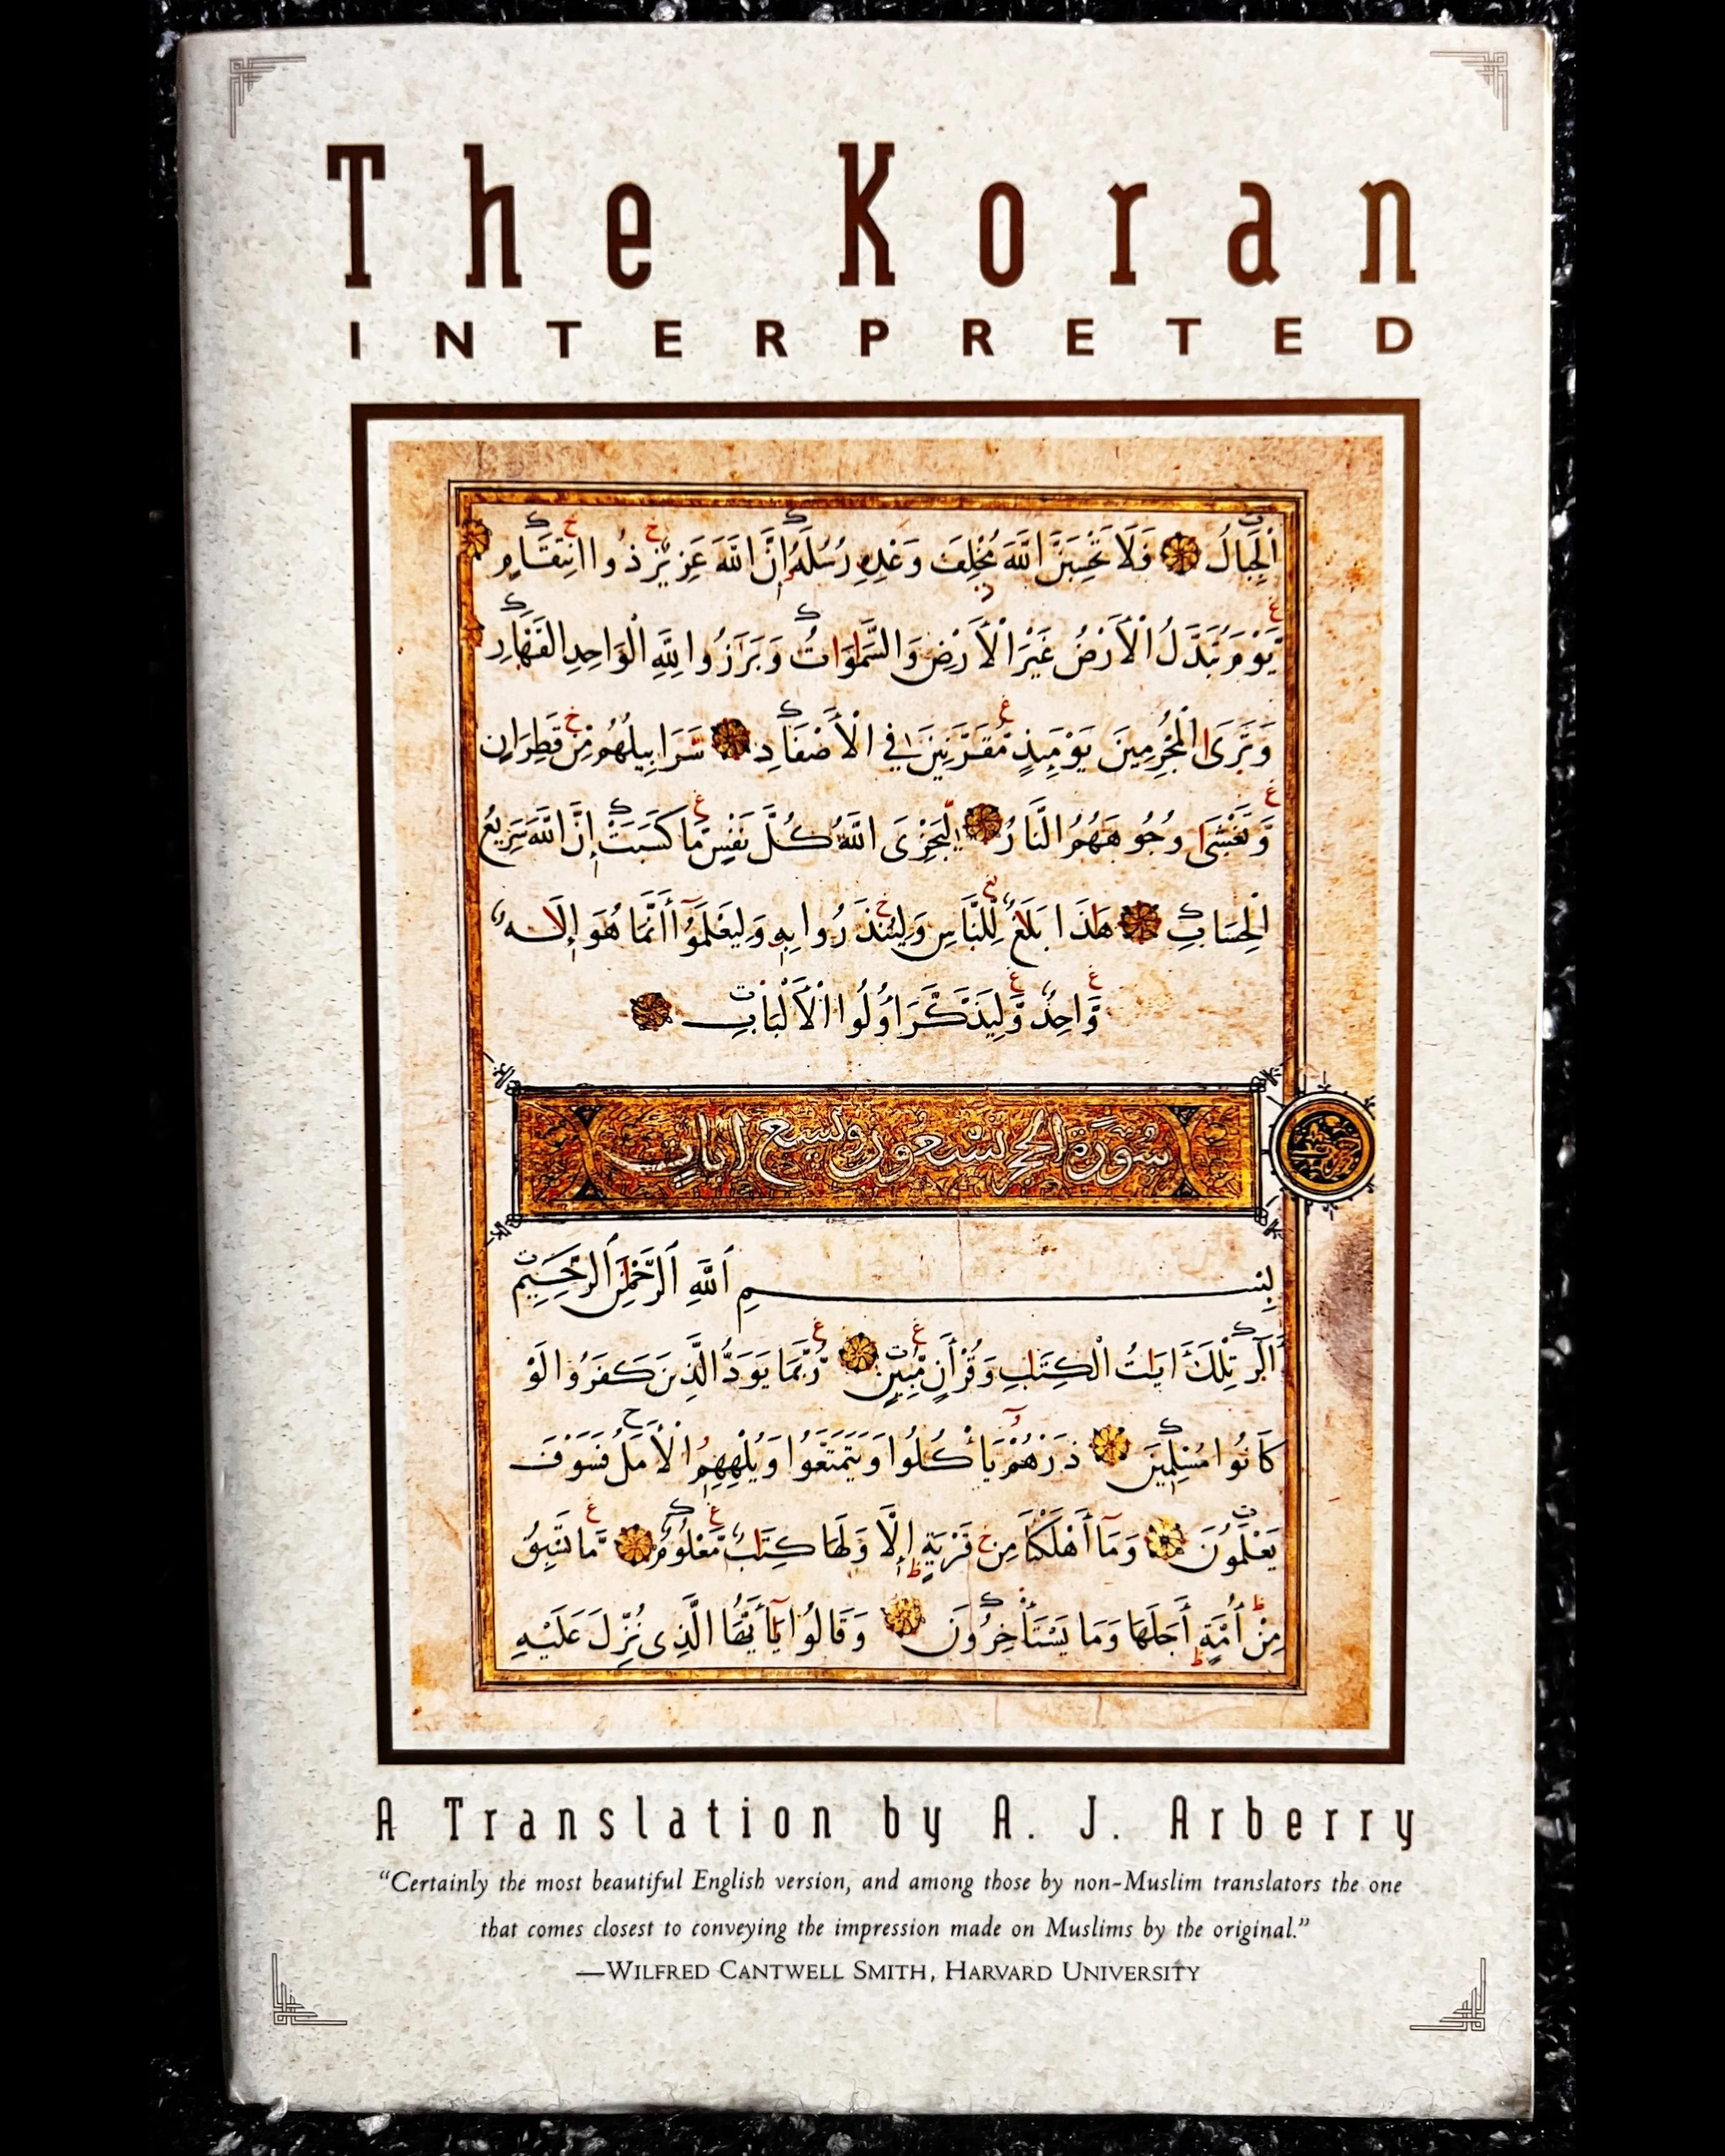 The Koran
INTERPRETED
ٱلْجِبَالُ فَلَا تَحْسِبَنَّ اللَّهَ مُخْلِفَ وَعْدِهِ رُسُلَهُ إِنَّ اللَّهَ عَزِيزٌ ذُو انْتِقَامٍ
يَوْمَ تُبَدَّلُ الْأَرْضُ غَيْرَ الْأَرْضِ وَالسَّمَوَاتُ وَبَرَزُوا لِلَّهِ الْوَاحِدِ الْقَهَّارِ
وَتَرَى الْمُجْرِمِينَ يَوْمَئِذٍ مُّقَرَّنِينَ فِي الْأَصْفَادِ سَرَابِيلُهُمْ مِّنْ قَطِرَانٍ
وَّتَغْشَى وُجُوهَهُمُ النَّارُ لِيَجْزِيَ اللَّهُ كُلَّ نَفْسٍ مَّا كَسَبَتْ إِنَّ اللَّهَ سَرِيعُ
الْحِسَابِ هَذَا بَلَاغٌ لِّلنَّاسِ وَلِيُنْذَرُوا بِهِ وَلِيَعْلَمُوا أَنَّمَا هُوَ إِلَهٌ
وَّاحِدٌ وَّلِيَذَّكَّرَ أُولُوا الْأَلْبَابِ
سُورَةُ الحجر تسعون وتسع ايات
بِسْمِ ٱللَّهِ ٱلرَّحْمَٰنِ ٱلرَّحِيمِ
الٓر تِلْكَ ايَاتُ الْكِتَابِ وَقُرْأَنٍ مُّبِينٍ رُّبَمَا يَوَدُّ الَّذِينَ كَفَرُوا لَوْ
كَانُوا مُسْلِمِينَ ذَرْهُمْ يَأْكُلُوا وَيَتَمَتَّعُوا وَيُلْهِهِمُ الْأَمَلُ فَسَوْفَ
يَعْلَمُونَ وَمَآ أَهْلَكْنَا مِنْ قَرْيَةٍ إِلَّا وَلَهَا كِتَابٌ مَّعْلُومٌ مَّا تَسْبِقُ
مِنْ أُمَّةٍ أَجَلَهَا وَمَا يَسْتَأْخِرُونَ وَقَالُوا يَآ أَيُّهَا الَّذِي نُزِّلَ عَلَيْهِ
A Translation by A. J. Arberry
“Certainly the most beautiful English version, and among those by non-Muslim translators the one
that comes closest to conveying the impression made on Muslims by the original.”
—WILFRED CANTWELL SMITH, HARVARD UNIVERSITY